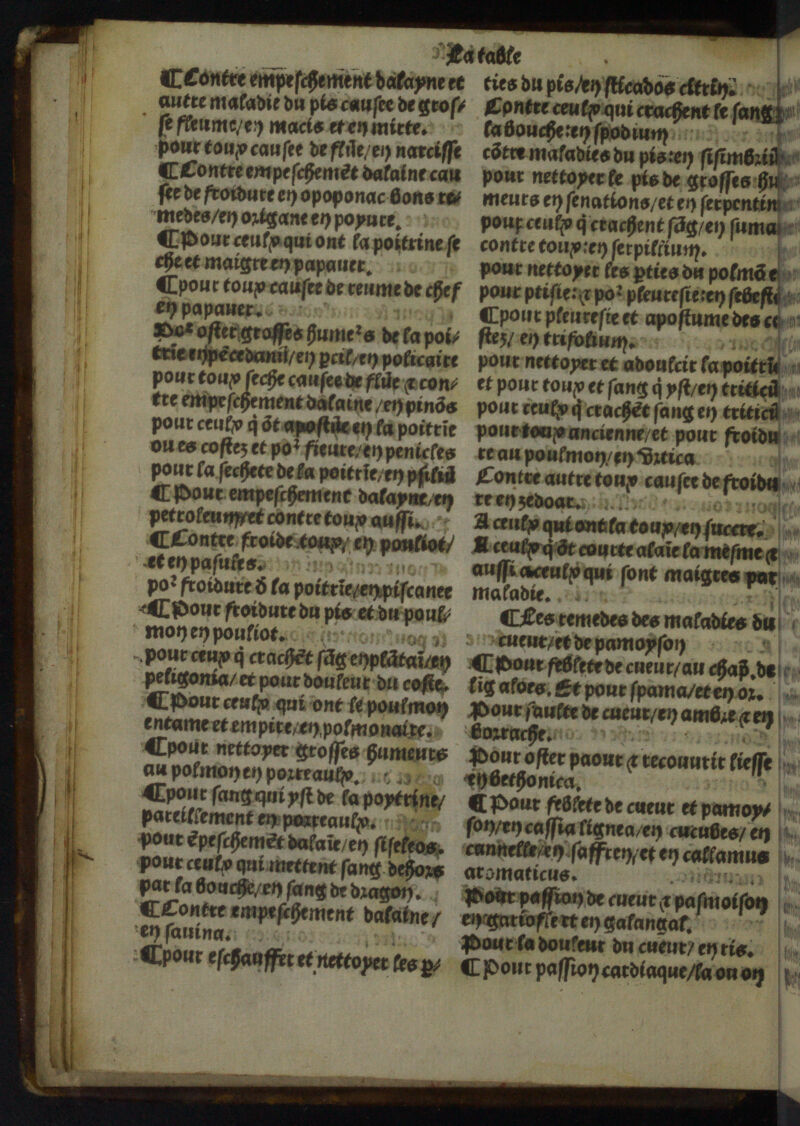 La table
¶Contre empeschement dalayne et
autre maladie du pis causee de gros/
se fleume/en macis et en mirte.
pour toux causee de flűe/en narcisse
¶Contre empeschemẽt dalaine cau
see de froidure en opoponac bons re/
medes/en origane en popure.
¶Pour ceulx qui ont la poitrine se
che et maigre en papauer.
¶pour toux causee de reume de chef
en papauer.
Po² oster grosses hume²s de la poi/
trie en pẽcedanű/en pcil/en policaire
pour toux seche causee de flűe ⁊ con/
tre empeschement dalaine/en pinõs
pour ceulx q̃ õt apostűe en la poittrie
ou es costez et po² fieure/en penicles
pour la sechete de la poitrie/en psiliũ
¶Pour empeschement dalayne/en
petroleum/et contre toux aussi.
¶Contre froide toux/ en pouliot/
et en pasules.
po² froidure d̃ la poitrie/en piscanee
¶Pour froidure du pis et du poul/
mon en pouliot.
pour ceux q̃ crachẽt sãg en plãtai/en
peligonia/et pour douleur du coste.
¶Pour ceulx qui ont le poulmon
entame et empire/en polmonaire.
¶pour nettoyer grosses humeurs
au polmon en porreaulx.
¶pour sang qui yst de la poytrine/
pareillement en porreaulx.
pour ẽpeschemẽt dalaie/en siseleos.
pour ceulx qui mettent sang dehors
par la bouche/en sang de dragon.
¶Contre empeschement dalaine/
en sauina.
¶pour eschauffer et nettoyer les p/
ties du pis/en sticados citrin.
Contre ceulx qui crachent le sang p
la bouche:en spodium
cõtre maladies du pis:en sisimbriũ
pour nettoyer le pis de grosses hu
meurs en senations/et en serpentin
pour ceulx q̃ crachent sãg/en suma
contre toux:en serpillium.
pour nettoyer les pties du polmã e
pour ptisie:⁊ po² pleuresie:en sebest
¶pour pleuresie et apostume des co
stez/ en trifolium.
pour nettoyer et adoulcir la poitri
et pour toux et sang q̃ yst/en triticũ
pour ceulx q̃ crachẽt sang en triticũ
pour toux ancienne/et pour froidu
re au poulmon/en Vrtica
Contre autre toux causee de froidu
re en zedoar.
A ceulx qui ont la toux/en succre.
A ceulx q̃ õt courte alaie la mesme ⁊
aussi a ceulx qui sont maigres par
maladie.
¶Les remedes des maladies du
cueur/et de pamoyson
¶Pour feblete de cueur/au chap̃.de
lig aloes. Et pour spama/et en or.
Pour faulte de cueur/en ambre ⁊ en
borrache.
Pour oster paour ⁊ recouurir liesse
en bethonica.
¶Pour feblete de cueur et pamoy/
son/en cassia lignea/en cucubes/ en
cannelle/en saffren/et en callamus
aromaticus.
Pour passion de cueur ⁊ pasmoison
en gariofle et en galangal.
Pour la douleur du cueur/ en ris.
¶Pour passion cardiaque/la ou on